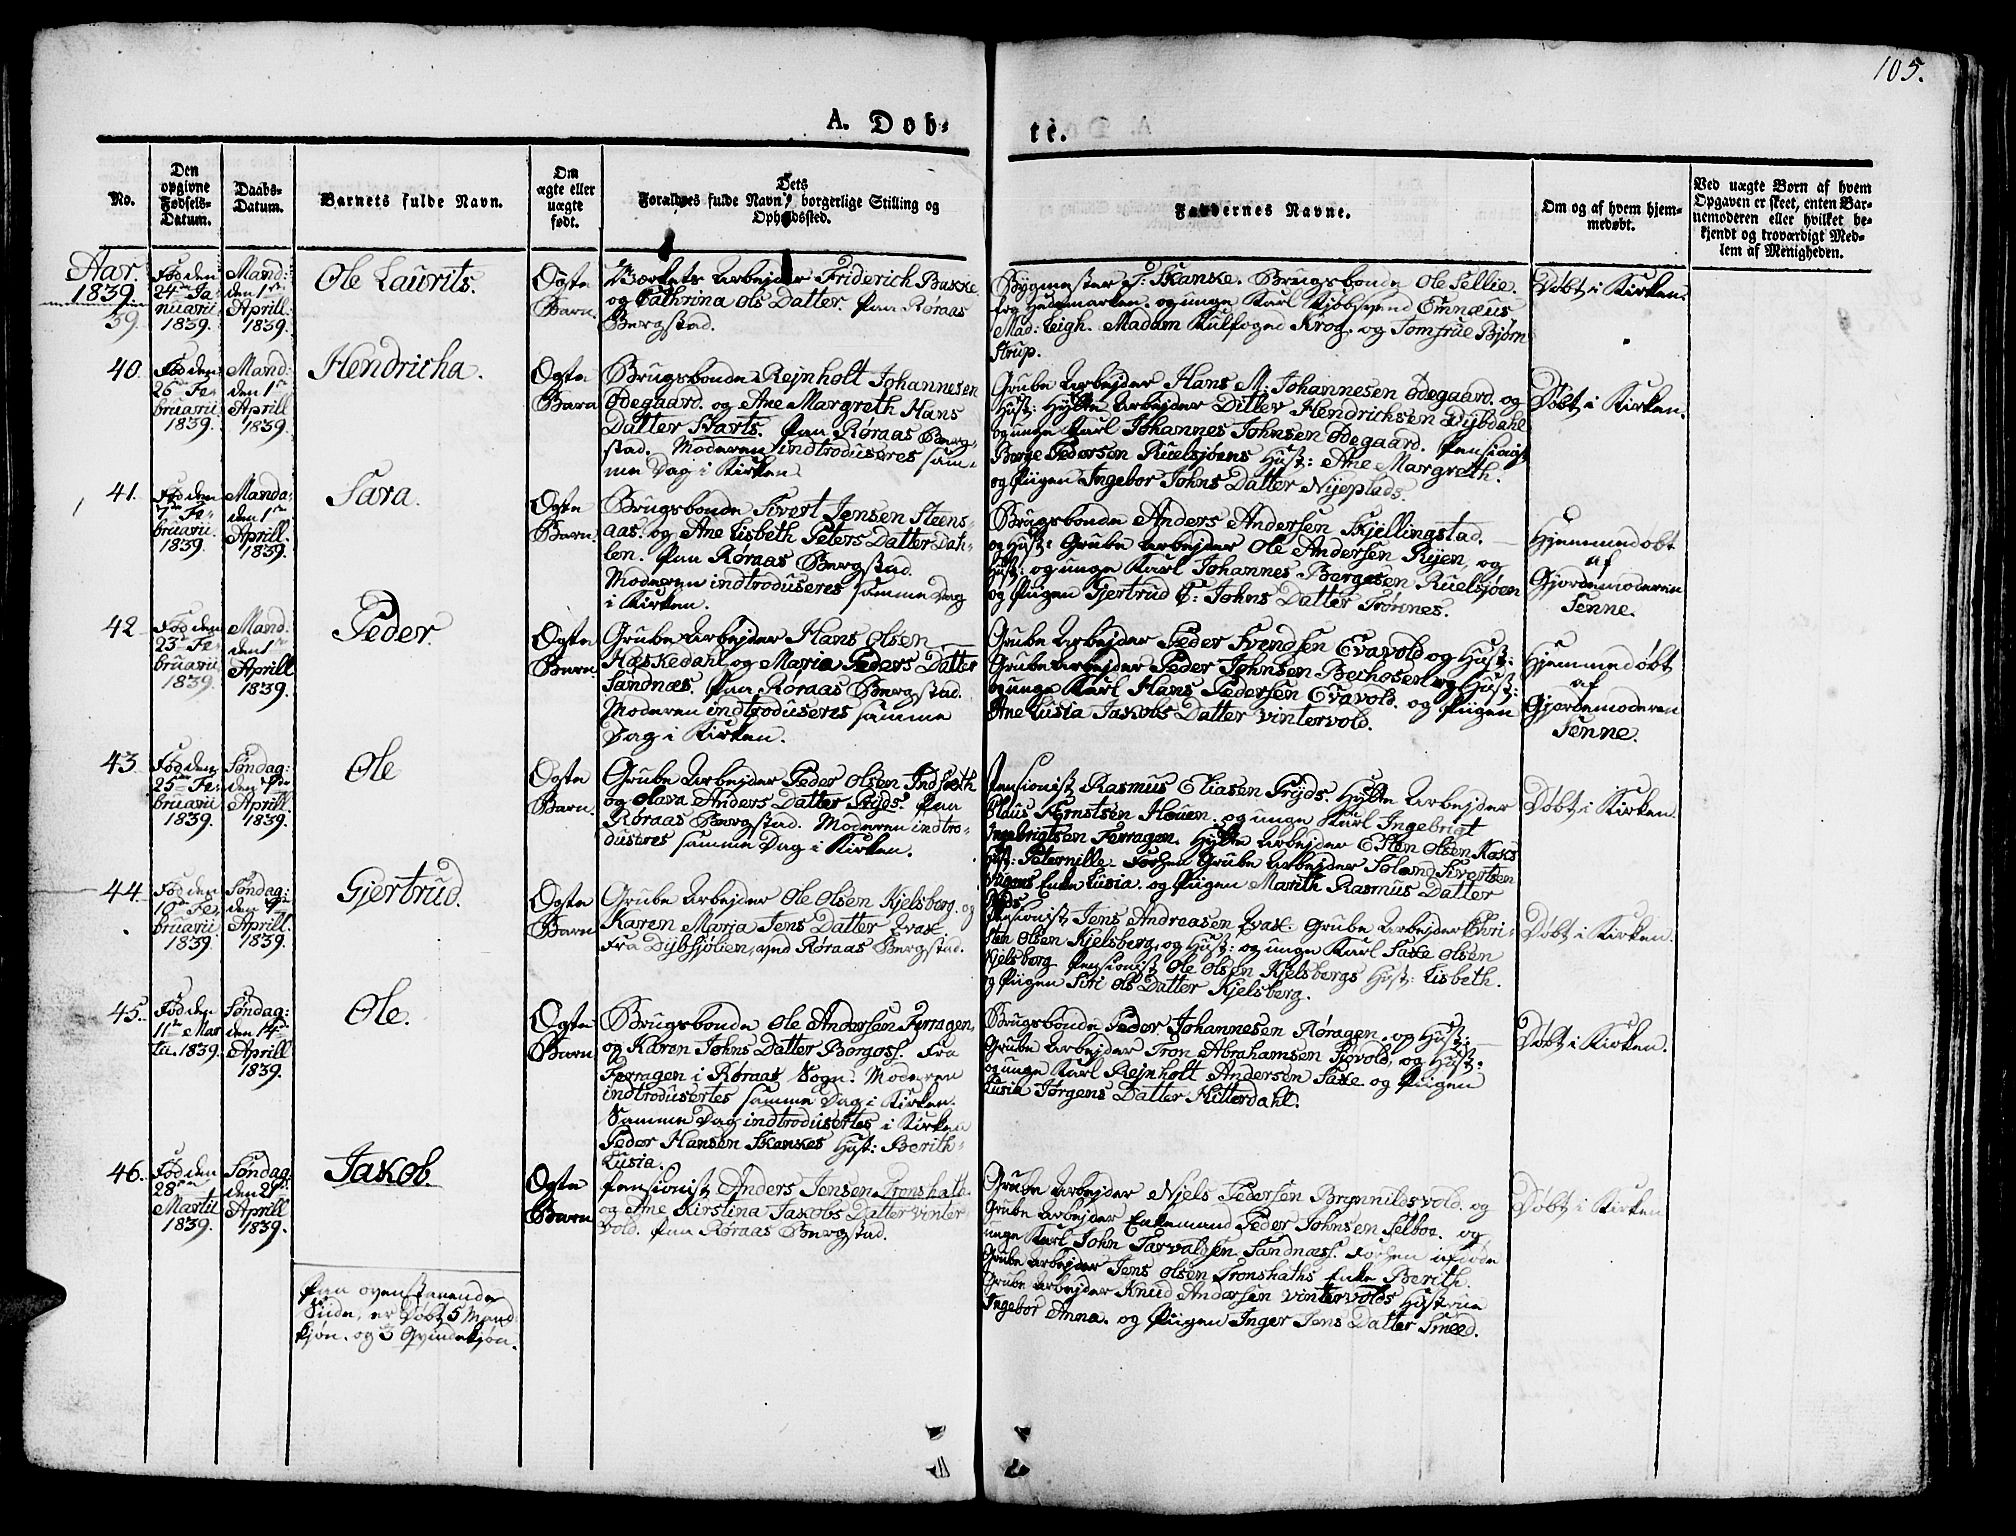 105.
A. Døb-
te.
No.
Den
opgivne
Fødsels-
Datum.
Daabs-
Datum.
Barnets fulde Navn.
Om
ægte eller
uægte
født.
Dets
Forældres fulde Navn, borgerlige Stilling og
Opholdssted.
Faddernes Navne.
Om og af hvem hjem-
medøbt.
Ved uægte Børn af hvem
Opgaven er skeet, enten Bar-
nemoderen eller hvilket be-
kjendt og troværdigt Med-
lem af Menigheden.
Aar.
1839.
39.
Fød den
24de Ja-
nuarii
1839.
Mand:
den 1ste
Aprill
1839.
Ole Laurits.
Ægte
Barn.
Værkets Arbejder Friderich Bakke
og Cathrina Ols Datter. Paa Røraas
Bergstad.
Bygmester P: Skanke. Brugsbonde Ole Sellie
fra Hedemarken. og unge Karl Kjøbsvend Emnæus
Mad: Leigh. Madam Kulfoged Krog. og Jomfrue Bjørn
strup.
Døbt i Kirken.
40.
Fød den
26de Fe-
bruarii
1839.
Mand
den 1ste
Aprill
1839.
Hendricha.
Ægte
Barn
Brugsbonde Rejnholt Johannesen
Ødegaard. og Ane Margreth Hans
Datter Harts. Paa Røraas Berg-
stad. Moderen indtroduseres sam-
me Dag i Kirken
Grube Arbejder Hans M: Johannesen Ødegaard. og
Hust: Hytte Arbejder Ditlev Hendrichsen Dybdahl
og unge Karl Johannes Johnsen Ødegaard. Pensionist
Børge Pedersen Ruelsjøens Hust: Ane Margreth.
og Pigen Ingebor Johns Datter Nyeplads.
Døbt i Kirken.
41.
Fød den
7de Fe-
bruarii
1839.
Manda:
den 1ste
Aprill.
1839.
Sara.
Ægte
Barn.
Brugsbonde Sivert Jensen Steens-
aas. og Ane Lisbeth Peters Datter Dah-
len. Paa Røraas Bergstad.
Moderen indtroduseres samme Dag
i Kirken.
Brugsbonde Anders Andersen Skjellingstad.
og Hust: Grube Arbejder Ole Andersen Ryen, og
Hust: og unge Karl Johannes Børgesen Ruelsjøen
og Pigen Gjertrud E: Johns Datter Trønnes.
Hjemmedøbt
af
Gjordemoderen
Senne.
42
Fød den
23de Fe-
bruarii
1839.
Mand
den 1
Aprill
1839.
Peder
Ægte
Barn
Grube Arbejder Hans Olsen
Haskedahl og Maria Peders Datter
Sandnæs. Paa Røraas Bergstad.
Moderen indtroduseres samme
Dag i Kirken.
Grube Arbejder Peder Svendsen Evavold og Hust:
Grube Arbejder Peder Johnsen Bechosen og Hust:
og unge Karl Hans Pedersen Evavold. og Pigen
Ane Lusia Jakobs Datter Vintervold.
Hjemmedøbt
af
Gjordemoderen
Senne.
43
Fød den
25de Fe-
bruarii
1839.
Søndag:
den 7de
Aprill
1839.
Ole
Ægte
Barn.
Grube Arbejder Peder Olsen Indsæth
og Olava Anders Datter Pryds. Paa
Røraas Bergstad. Moderen indtro-
duseres samme Dag i Kirken.
Pensionist Rasmus Eliasen Pryds. Hytte Arbejder
Claus Ferntsen Houen. og unge Karl Ingebrigt
Ingebrigtsen Ferragen. Hytte Arbejder Esten Olsen
Hust: Peternille. Grube Arbejder Sivertsen
Enke Lusia. og Pigen Marith Rasmus Datter
Pryds.
Døbt i Kirken.
44.
Fød den
18de Fe-
bruarii
1839.
Søndag:
den 7de
Aprill.
1839.
Gjertrud.
Ægte
Barn
Grube Arbejder Ole Olsen Kjelsberg. og
Karen Marja Jens Datter Qvax.
Fra Dybsjølien, ved Røraas Bergstad.
Pensionist Jens Andreasen Qvax. Grube Arbejder Chri-
sten Olsen Kjelsberg, og Hust: og unge Karl Saxe Olsen
Kjelsberg Pensionist Ole Olsen Kjelsbergs Hust: Lisbeth.
og Pigen Siri Ols Datter Kjelsberg.
Døbt i Kirken.
45.
Fød den
11te Mar
tii. 1839.
Søndag:
den 14de
Aprill
1839.
Ole.
Ægte
Barn
Brugsbonde Ole Andersen Ferragen,
og Karen Johns Datter Borgos. Fra
Ferragen i Røraas Sogn. Moderen
indtrodusertes samme Dag i Kirken.
Samme Dag indtrodusertes i Kirken
Peder Hansen Skankes Hust: Berith-
Lusia.
Brugsbonde Peder Johannesen Røragen. og Hust:
Grube Arbejder Tron Abrahamsen Sjøvold, og Hust:
og unge Karl Rejnholt Andersen Saxe og Pigen
Lusia Jørgens Datter Hitterdahl.
Døbt i Kirken.
46.
Fød den
28de
Martii
1839.
Søndag
den 21de
Aprill
1839.
Jakob.
Ægte
Barn
Pensionist Anders Jensen Tronshath.
og Ane Kirstina Jakobs Datter Vinter
vold. Paa Røraas Bergstad.
Grube Arbejder Njels Pedersen Brynnildsvold. og
Grube Arbejder Enkemand Peder Johnsen Selboe. og
unge Karl John Tarvaldsen Sandnæs.
Grube Arbejder Jens Olsen Tronshaths Enke Berith.
Grube Arbejder Knud Andersen Vintervolds Hustrue
Ingebor Anna. og Pigen Inger Jens Datter Smeed.
Døbt i Kirken
Paa ovenstaaende
Side, er Døbt 5 Mand-
kjøn. og 3 Qvindekjøn.